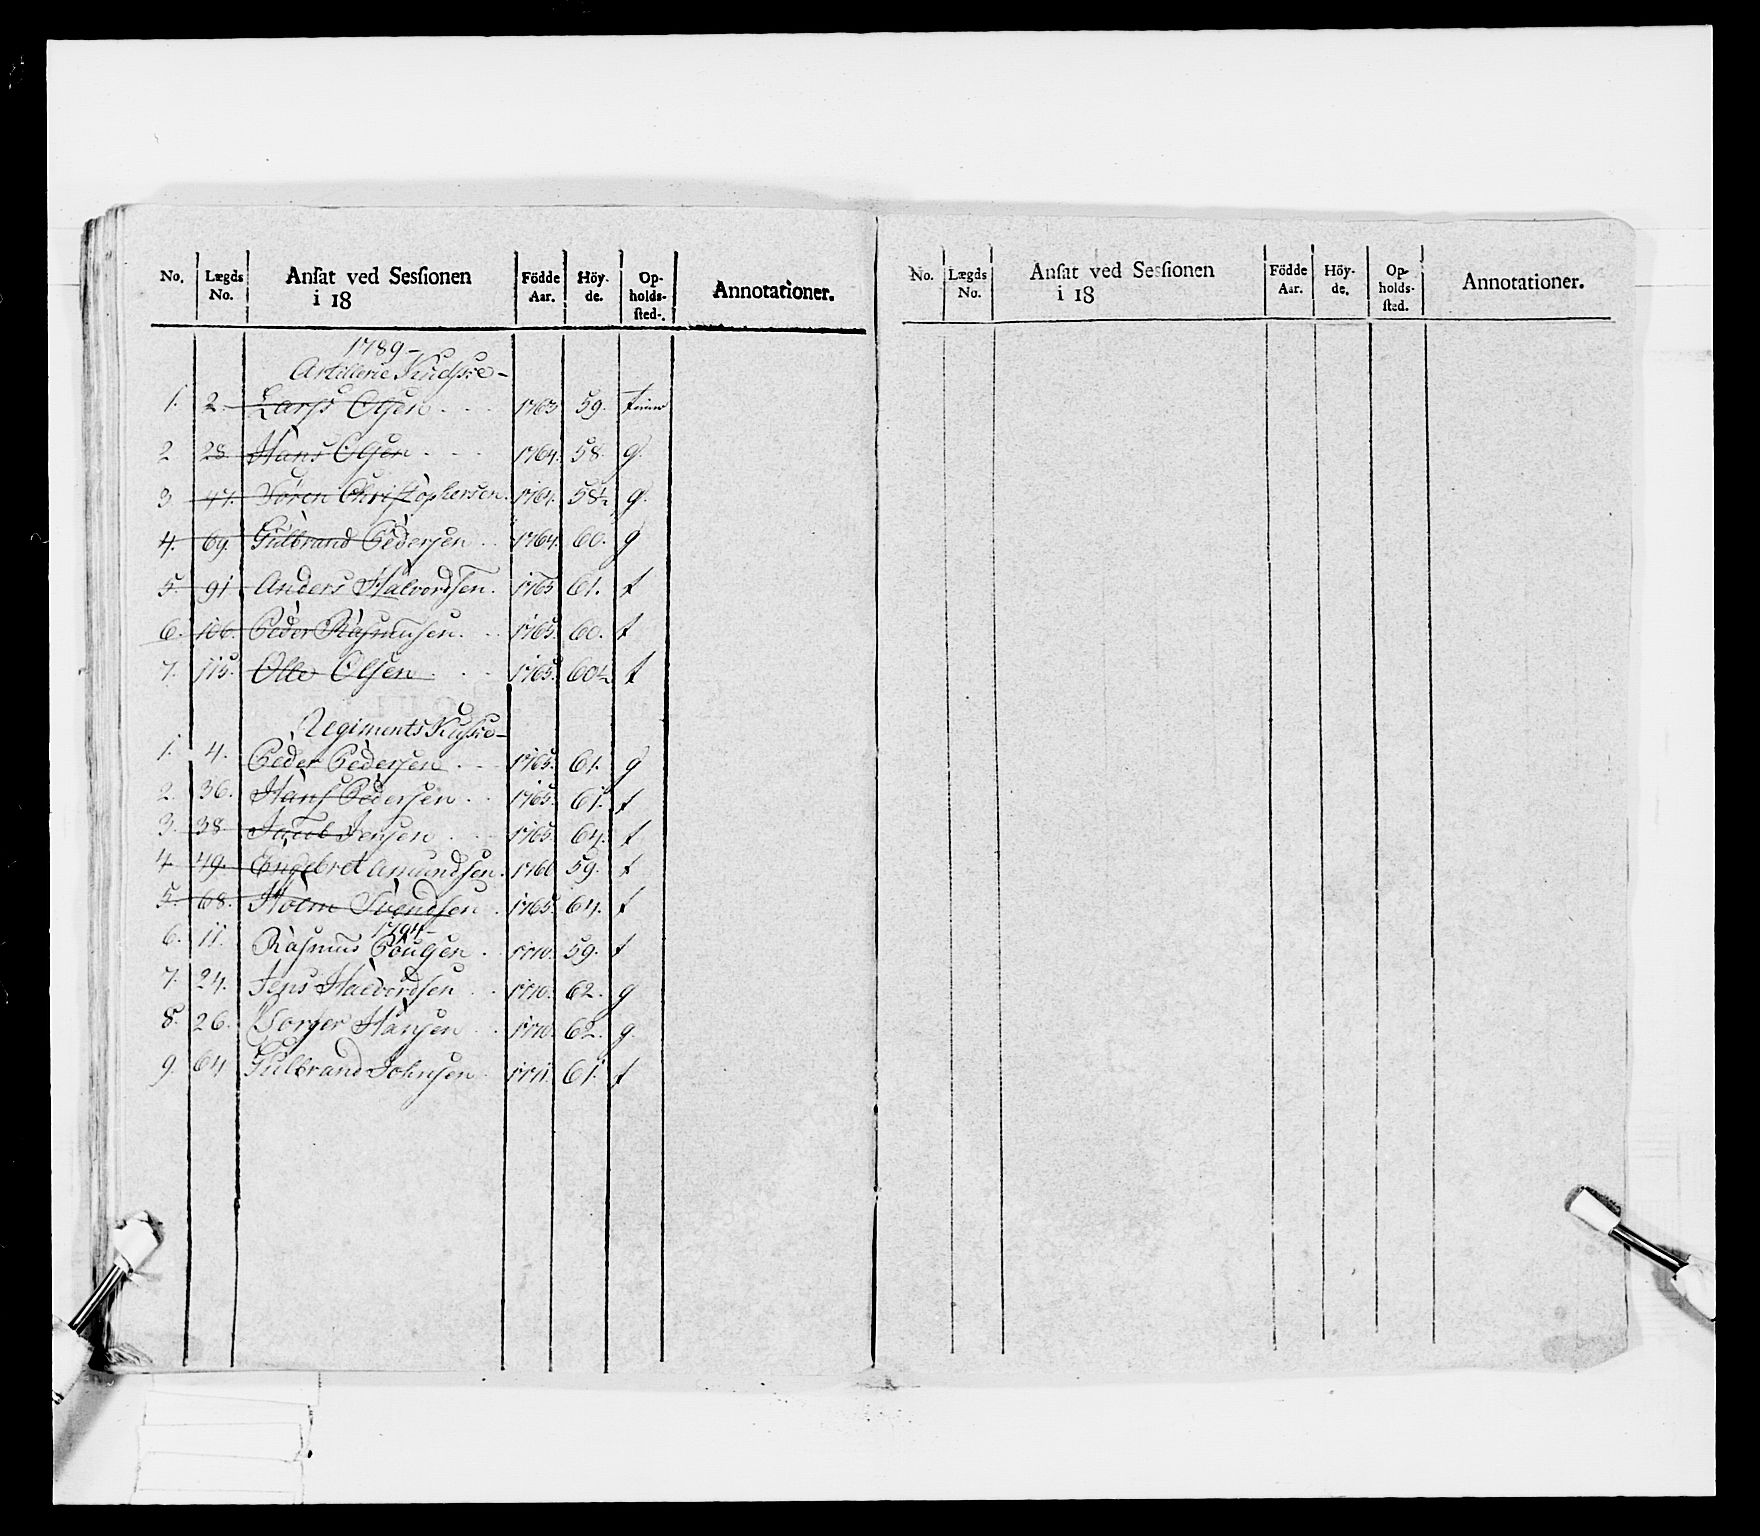 No. Lægds No. Ansat ved Sessionen i 18 Födde Aar. Höy-de. Op-holds-sted-. Annotationer.
1789-
Artillerie Kudske-
1. 2. Lars Olsen 1763 59.
2 28. Hans Olsen 1764. 58. g.
3 47. Sören Christophersen. 1764. 58½ g.
4. 69. Gulbrand Pedersen 1764. 60. g
5. 91 Anders Halvordsen. 1765 61. t
6. 106. Peder Rasmusen. 1765. 60. t
7. 115. Olle Olsen 1765. 60½ t
Regiments Kuske-
1. 4. Peder Pedersen 1765. 61. g
2. 36. Hans Pedersen 1765. 61. t
3. 38. Jacob Jensen 1765. 64. t
4. 49. Engebret Amundsen. 1760 59. t
5. 68. Holm Svendsen 1765. 64. t
1794-
6. 11. Rasmus Poulsen 1770. 59. t
7. 24. Jens Halvordsen 1770. 62. g
8. 26. Torger Hansen 1770. 62. g.
9. 64 Gulbrand Johnsen 1771. 61. t
No. Lægds No. Ansat ved Sessionen i 18 Födde Aar. Höy-de. Op-holds-sted. Annotationer.